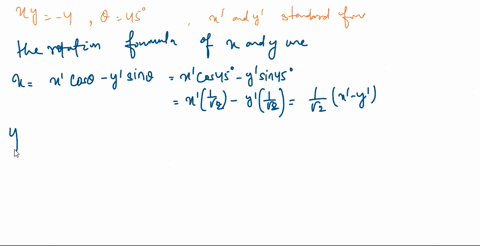 xy = -4 , θ = 45° , x' and y' standard for
the rotation formula of x and y are
x = x' cosθ - y' sinθ = x' cos45° - y' sin45°
= x' (1/√2) - y' (1/√2) = 1/√2 (x' - y')
y